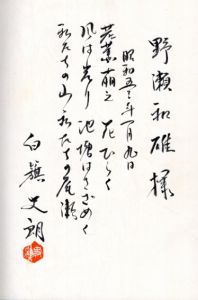 野瀬和雄様
昭和五三年一月九日
若葉萌え 花ひらく
風は光り 池塘はさざめく
私たちの山 私たちの尾瀬
白籏史朗